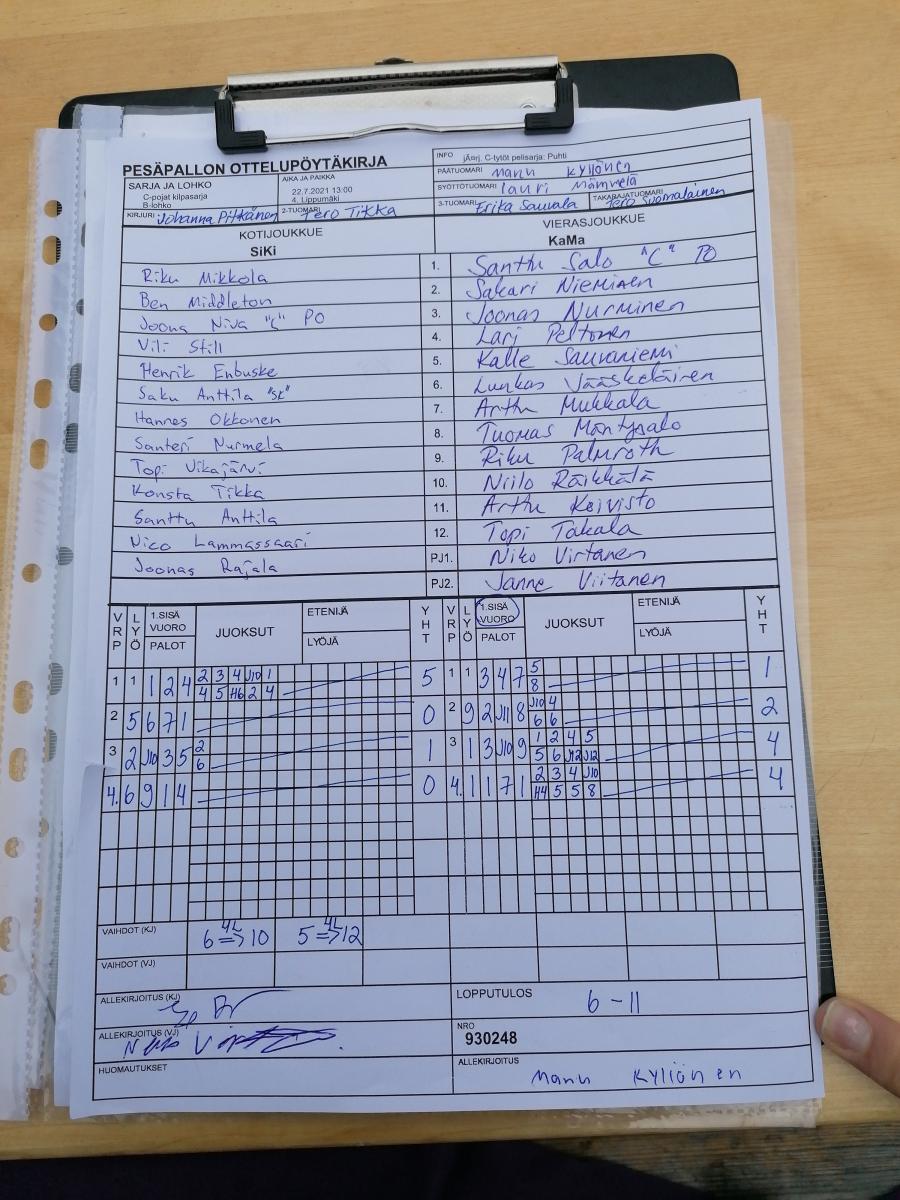 PESÄPALLON OTTELUPÖYTÄKIRJA
INFO jÄŋrj. C-tytöt pelisarja: Puhti
PÄÄTUOMARI Manu Kyllönen
SARJA JA LOHKO
C-pojat kilpasarja
B-lohko
AIKA JA PAIKKA
22.7.2021 13:00
4. Lippumäki
SYÖTTÖTUOMARI Lauri Mämmelä
KIRJURI Johanna Pitkänen 2-TUOMARI Tero Tikka 3-TUOMARI Erika Sauvala TAKARAJATUOMARI Tero Suomalainen
KOTIJOUKKUE VIERASJOUKKUE
SiKi KaMa
Riku Mikkola 1. Santtu Salo "C" PO
Ben Middleton 2. Sakari Nieminen
Joona Niva "C" PO 3. Joonas Nurminen
Vili Still 4. Lari Peltonen
Henrik Enbuske 5. Kalle Sauvaniemi
Saku Anttila "SK" 6. Luukas Vääskeläinen
Hannes Okkonen 7. Arttu Mukkala
Santeri Nurmela 8. Tuomas Mäntysalo
Topi Vikajärvi 9. Riku Palmroth
Konsta Tikka 10. Niilo Räikkätä
Santtu Anttila 11. Arttu Koivisto
Nico Lammassaari 12. Topi Takala
Joonas Rajala PJ1. Niko Virtanen
PJ2. Janne Viitanen
VRP LYÖ 1.SISÄ VUORO PALOT JUOKSUT ETENIJÄ LYÖJÄ YHT VRP LYÖ 1.SISÄ VUORO PALOT JUOKSUT ETENIJÄ LYÖJÄ YHT
1 1 1 2 4 2 3 4 J10 1 5 1 1 3 4 7 5 1
4 5 H6 2 4 8
2 5 6 7 1 0 2 9 2 J11 8 J10 4 2
6 6
3 2 J10 3 5 2 1 3 1 3 J10 9 1 2 4 5 4
6 5 6 J12 J12
4. 6 9 1 4 0 4. 1 1 7 1 2 3 4 J10 4
H4 5 5 8
VAIHDOT (KJ) 6 4L => 10 5 4L => 12
VAIHDOT (VJ)
ALLEKIRJOITUS (KJ) LOPPUTULOS 6 - 11
ALLEKIRJOITUS (VJ) NRO
930248
HUOMAUTUKSET ALLEKIRJOITUS Manu Kyllönen